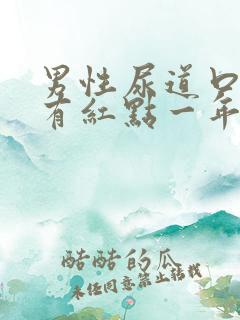 男性尿道口
有紅點一年
酷酷的瓜
未经同意禁止转载